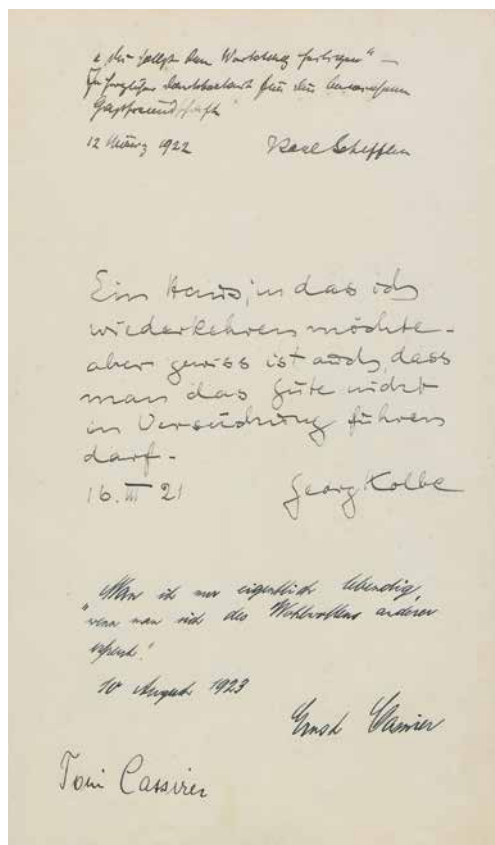 „Du sollst den Werktag heiligen“ —
In herzlicher Dankbarkeit für die bewiesene
Gastfreundschaft
12 März 1922 Karl Scheffler
Ein Haus, in das ich
wiederkehren möchte -
aber gewiss ist auch, dass
man das Gute nicht
in Versuchung führen
darf -
16. III 21 Georg Kolbe
„Man ist nur eigentlich lebendig,
wenn man sich des Wohlwollens anderer
erfreut!
10 August 1923
Ernst Cassirer
Toni Cassirer